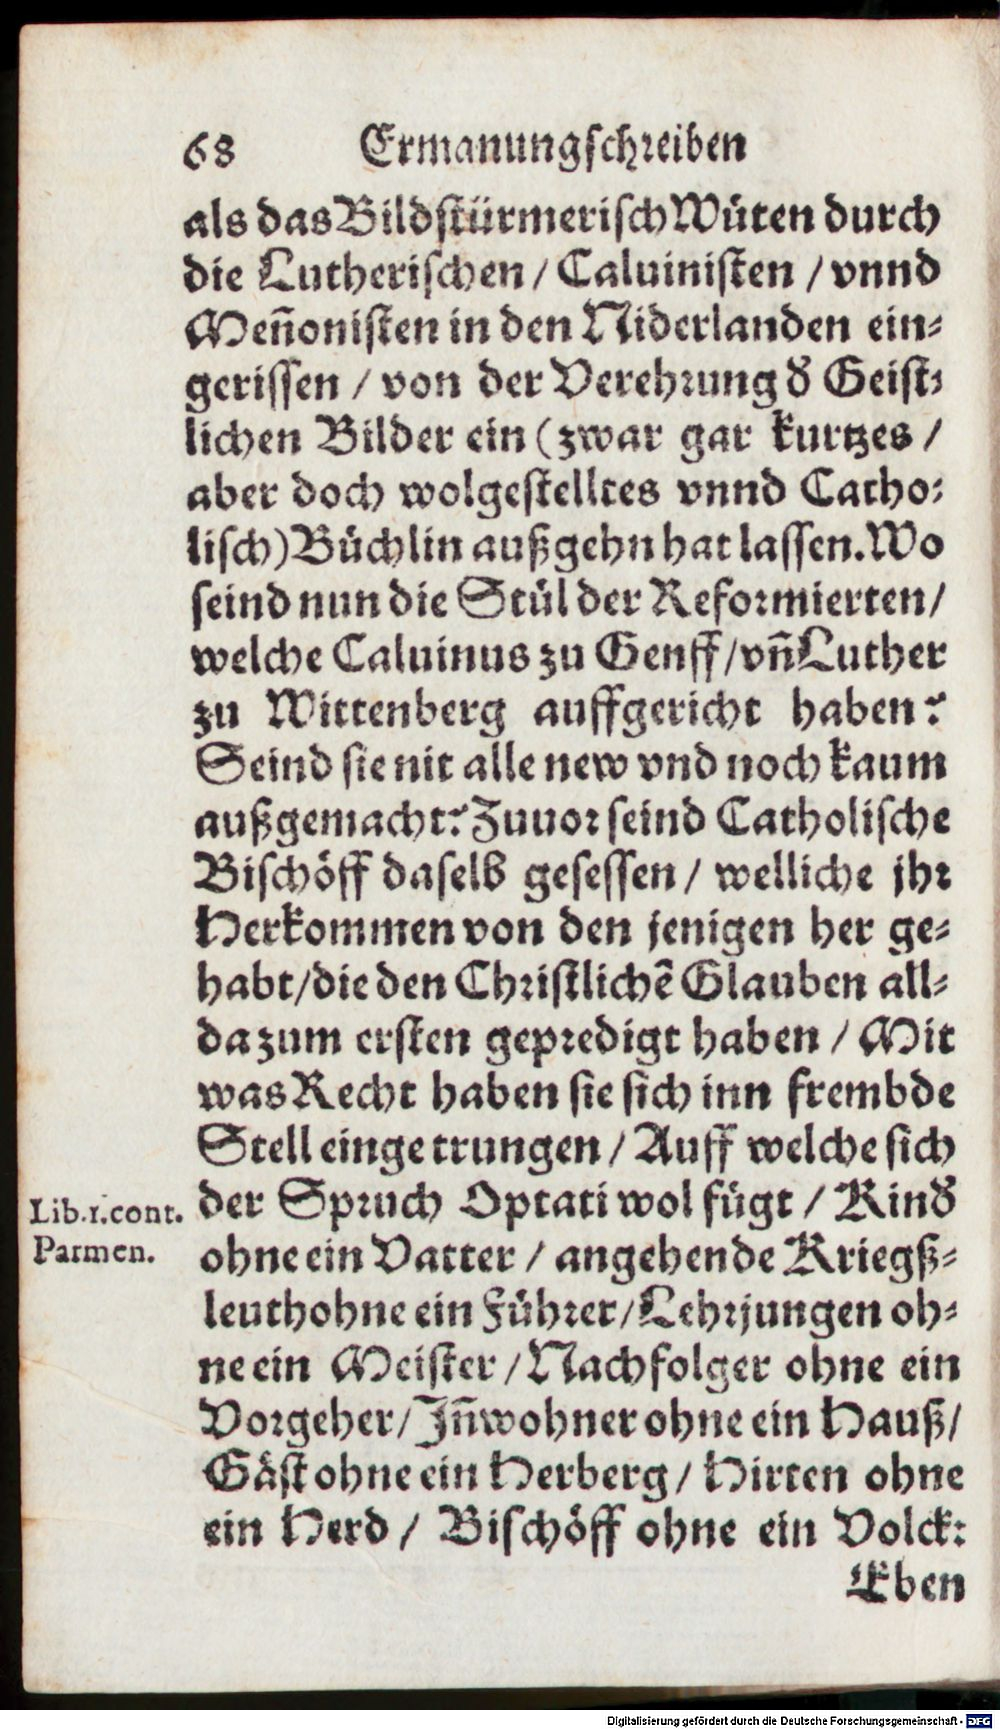 68 Ermanungschreiben
als das Bildstürmerisch Wüten durch
die Lutherischen / Caluinisten / vnnd
Meñonisten in den Niderlanden ein⸗
gerissen / von der Verehrung d̕ Geist⸗
lichen Bilder ein (zwar gar kurtzes /
aber doch wolgestelltes vnnd Catho⸗
lisch) Büchlin außgehn hat lassen. Wo
seind nun die Stül der Reformierten /
welche Caluinus zu Genff / vñ Luther
zu Wittenberg auffgericht haben?
Seind sie nit alle new vnd noch kaum
außgemacht? Zuuor seind Catholische
Bischöff daselb gesessen / welliche jhr
Herkommen von den jenigen her ge⸗
habt / die den Christlichẽ Glauben all⸗
da zum ersten gepredigt haben / Mit
was Recht haben sie sich inn frembde
Stell eingetrungen / Auff welche sich
der Spruch Optati wol fügt / Kind̕
Lib. 1. cont.
Parmen.
ohne ein Vatter / angehende Kriegß⸗
leuth ohne ein Führer / Lehrjungen oh⸗
ne ein Meister / Nachfolger ohne ein
Vorgeher / Jñwohner ohne ein Hauß /
Gäst ohne ein Herberg / Hirten ohne
ein Herd / Bischöff ohne ein Volck:
Eben
Digitalisierung gefördert durch die Deutsche Forschungsgemeinschaft - DFG